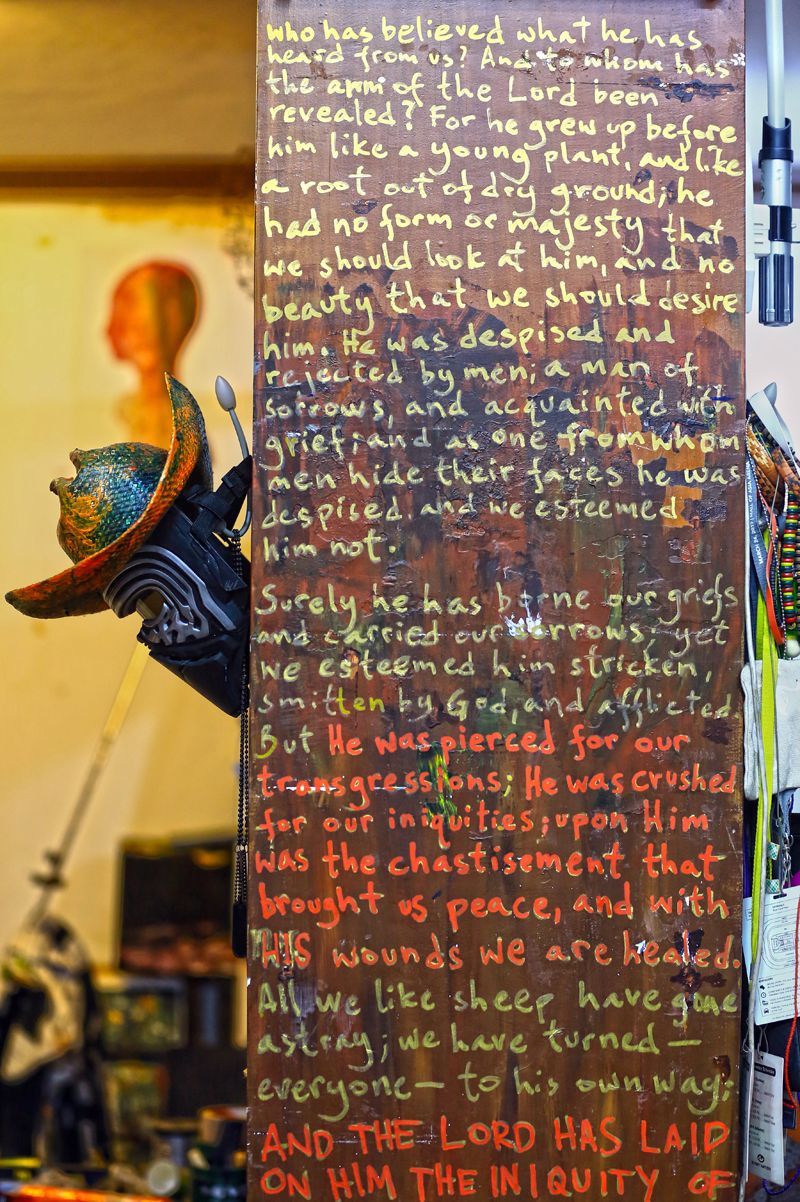 who has believed what he has
heard from us? And to whom has
the arm of the Lord been
revealed? For he grew up before
him like a young plant, and like
a root out of dry ground; he
had no form or majesty that
we should look at him, and no
beauty that we should desire
him. He was despised and
rejected by men; a man of
sorrows, and acquainted with
grief; and as one from whom
men hide their faces he was
despised, and we esteemed
him not.
Surely he has borne our griefs
and carried our sorrows; yet
we esteemed him stricken,
smitten by God, and afflicted
But He was pierced for our
transgressions; He was crushed
for our iniquities; upon Him
was the chastisement that
brought us peace, and with
HIS wounds we are healed.
All we like sheep have gone
astray; we have turned —
everyone — to his own way;
AND THE LORD HAS LAID
ON HIM THE INIQUITY OF